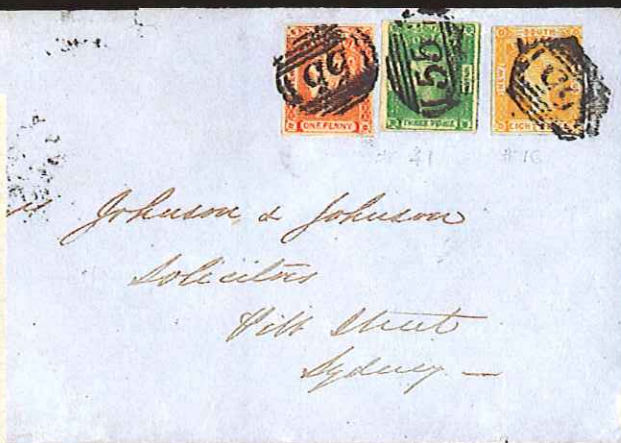 55
ONE PENNY
55
THREE PENCE
SOUTH
NEW
EIGHT
55
41
#76
Johnson & Johnson
Solicitors
Pitt Street
Sydney —